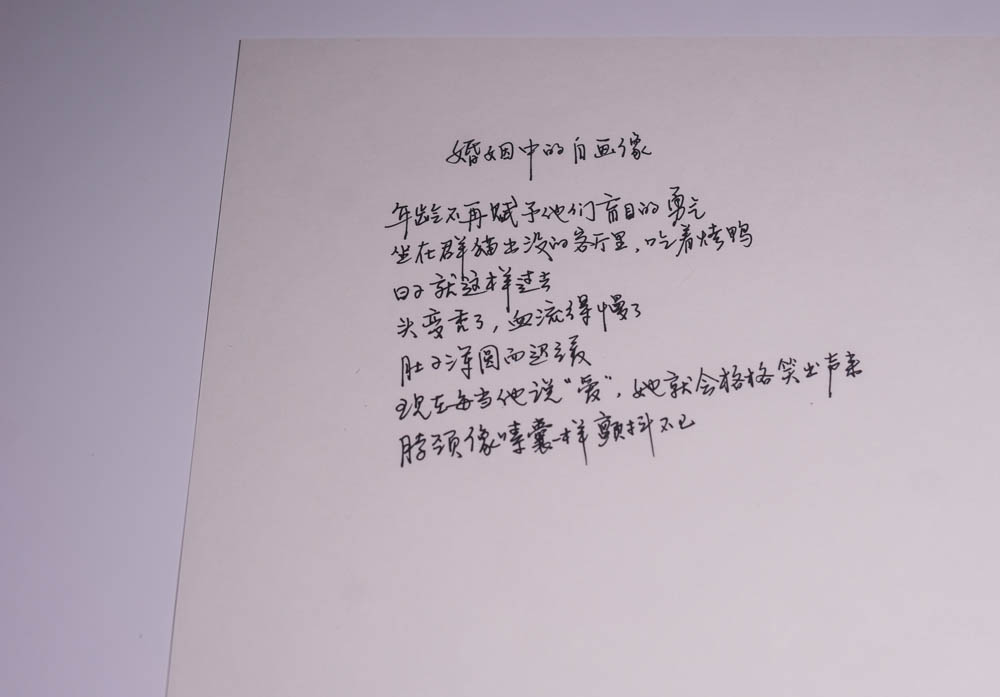 婚姻中的自画像
年龄不再赋予他们盲目的勇气
坐在群猫出没的客厅里，吃着烤鸭
日子就这样过去
头变秃了，血流得慢了
肚子浑圆而迟缓
现在每当他说“爱”，她就会格格笑出声来
脖颈像嗉囊一样颤抖不已